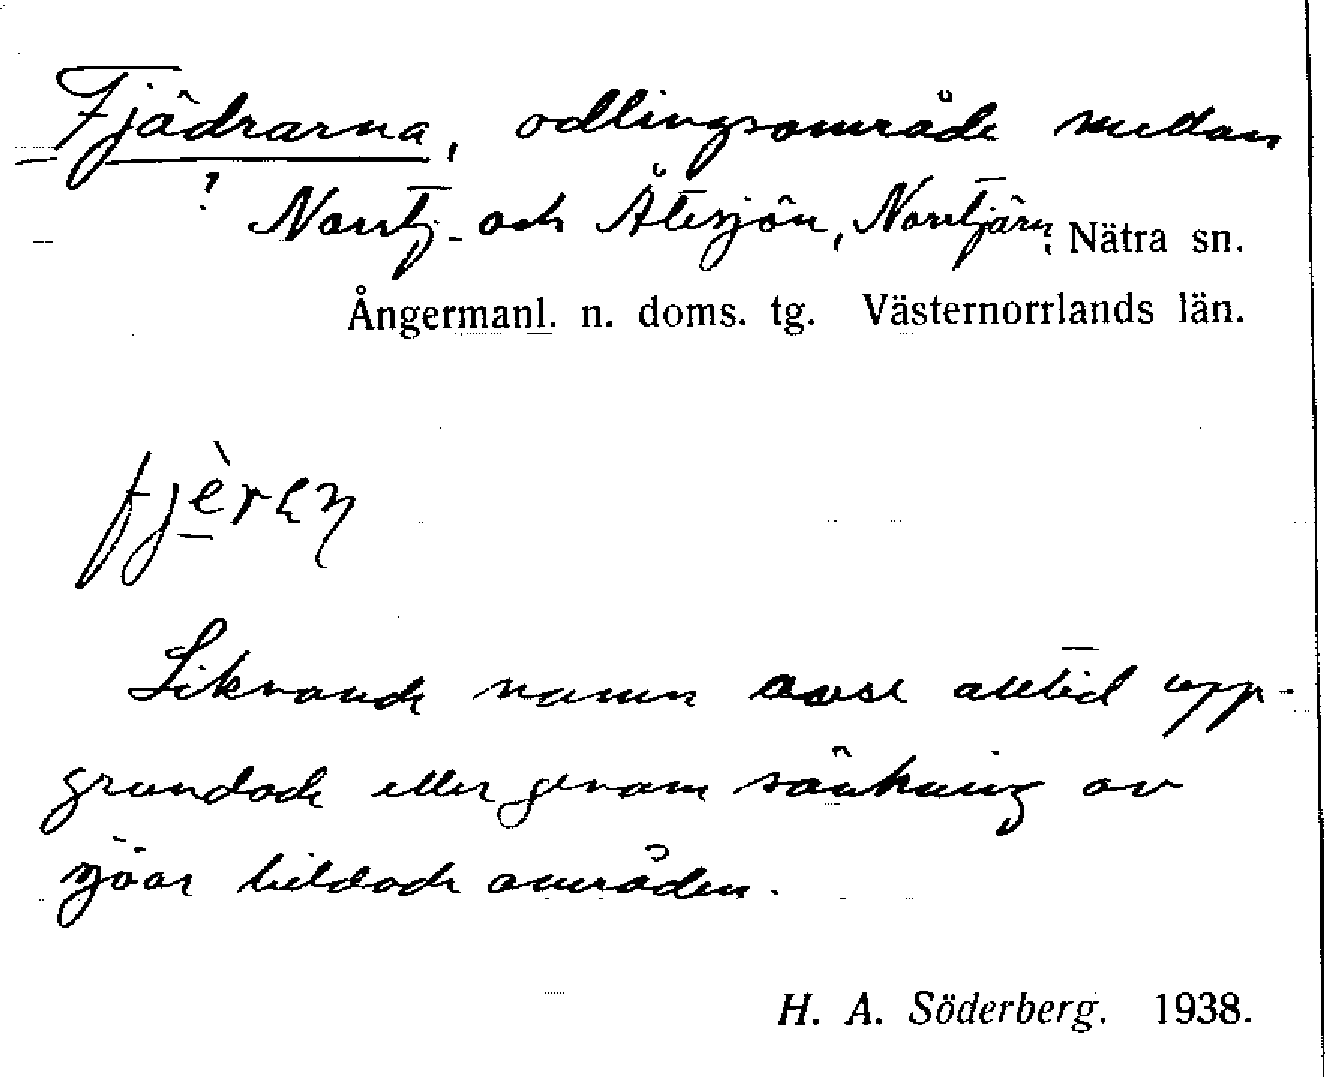 Fjädrarna, odlingsområde mellan
? Norrtj- och Åtesjön, Norrtjärn, Nätra sn.
Ångermanl. n. doms. tg. Västernorrlands län.
fjèren
Liknande namn avse alltid upp-
grundade eller genom sänkning av
sjöar bildade områden.
H. A. Söderberg. 1938.